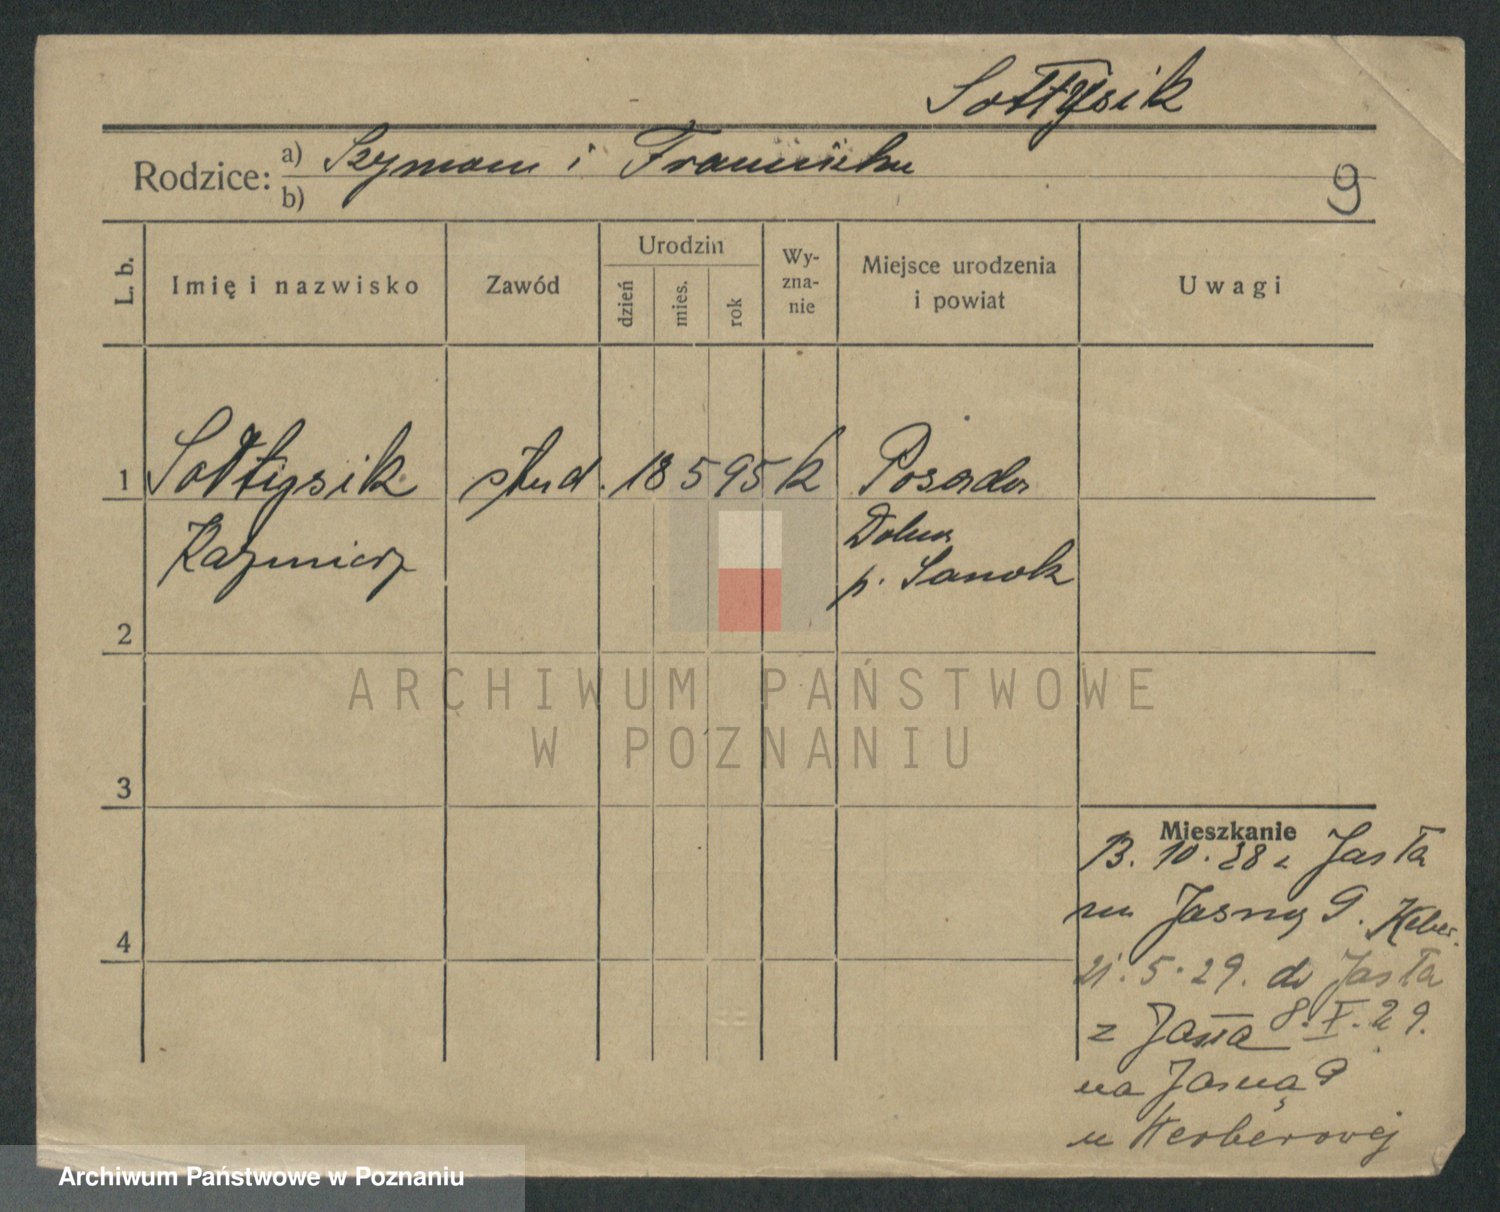 Sołtysik
Rodzice: a) Szymon i Franciszka
b)
9
L. b.
Imię i nazwisko
Zawód
Urodzin
dzień
mies.
rok
Wy-
zna-
nie
Miejsce urodzenia
i powiat
Uwagi
1 Sołtysik stud. 18 5 95 k Posada
Kazimierz
Dolna
p. Sanok
2
ARCHIWUM PAŃSTWOWE
W POZNANIU
3
Mieszkanie
13. 10. 28 z Jasła
na Jasną 9. Heber.
21. 5. 29. do Jasła
z Jasła 8. X. 29.
na Jasną 9
u Herberowej
4
Archiwum Państwowe w Poznaniu